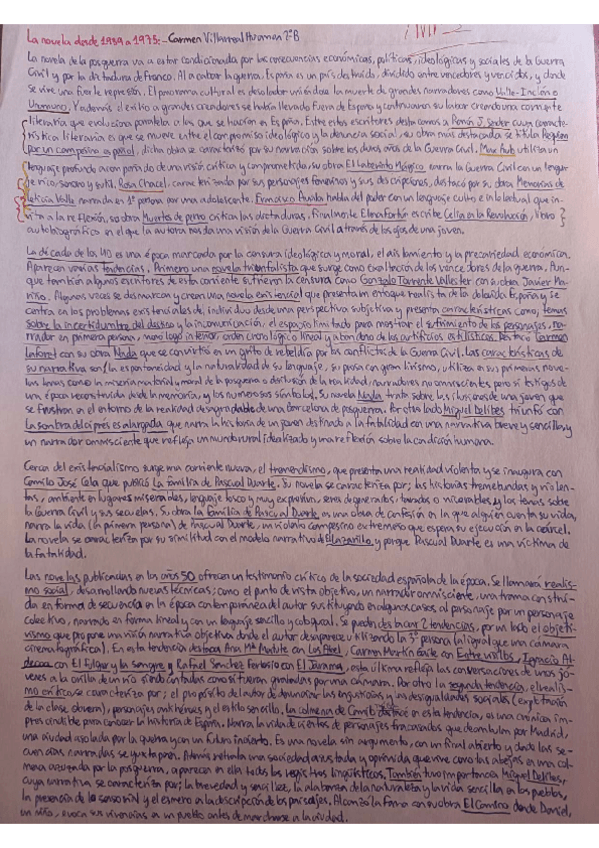 La novela desde 1939 a 1975.- Carmen Villarreal Huaman 2ºB
La novela de la posguerra va a estar condicionada por las consecuencias económicas, políticas, ideológicas y sociales de la Guerra
Civil y por la dictadura de Franco. Al acabar la guerra, España es un país destruido, dividido entre vencedores y vencidos, y donde
se vive una fuerte represión. El panorama cultural es desolador unido a la muerte de grandes narradores como Valle-Inclán o
Unamuno. Y además el exilio a grandes creadores se había llevado fuera de España y continuaron su labor creando una corriente
literaria que evoluciona paralela a las que se hacían en España. Entre estos escritores destacamos a Ramón J. Sender cuya caracte-
rística literaria es que se mueve entre el compromiso ideológico y la denuncia social, su obra más destacada se titula Requiem
por un campesino español, dicha obra se caracterizó por su narración sobre los duros años de la Guerra Civil. Max Aub utiliza un
lenguaje profundo acompañado de una visión crítica y comprometida, su obra El Laberinto Mágico narra la Guerra Civil con un lengua-
je rico, sonoro y sutil. Rosa Chacel, caracterizada por sus personajes femeninos y sus descripciones, destacó por su obra Memorias de
Leticia Valle narrada en 1ª persona por una adolescente. Francisco Ayala habla del poder con un lenguaje culto e intelectual que in-
vita a la reflexión, su obra Muertes de perro critica las dictaduras. Finalmente Elena Fortún escribe Celia en la Revolución, libro
autobiográfico en el que la autora nos da una visión de la Guerra Civil a través de los ojos de una joven.
La década de los 40 es una época marcada por la censura ideológica y moral, el aislamiento y la precariedad económica.
Aparecen varias tendencias. Primero una novela triunfalista que surge como exaltación de los vencedores de la guerra. Aun-
que también algunos escritores de esta corriente sufrieron la censura como Gonzalo Torrente Ballester con su obra Javier Ma-
riño. Algunas veces se desmarcan y crean una novela existencial que presenta un enfoque realista de la dolorida España y se
centra en los problemas existenciales del individuo desde una perspectiva subjetiva y presenta características como, temas
sobre la incertidumbre del destino y la incomunicación, el espacio limitado para mostrar el sufrimiento de los personajes, na-
rrador en primera persona, monólogo interior, orden cronológico lineal y abandono de los artificios estilísticos. Destacó Carmen
Laforet con su obra Nada que se convirtió en un grito de rebeldía por los conflictos de la Guerra Civil. Las características de
su narrativa son: la espontaneidad y la naturalidad de su lenguaje, su prosa con gran lirismo, utiliza en sus primeras nove-
las temas como la miseria material y moral de la posguerra o desilusión de la realidad, narradores no omniscientes pero sí testigos de
una época reconstruida desde la memoria, y los numerosos símbolos. Su novela Nada trata sobre las ilusiones de una joven que
se frustran en el entorno de la realidad desagradable de una Barcelona de posguerra. Por otro lado Miguel Delibes triunfó con
La sombra del ciprés es alargada que narra la historia de un joven destinado a la fatalidad con una narrativa breve y sencilla y
un narrador omnisciente que refleja un mundo rural idealizado y una reflexión sobre la condición humana.
Cerca del existencialismo surge una corriente nueva, el tremendismo, que presenta una realidad violenta y se inaugura con
Camilo José Cela que publicó La familia de Pascual Duarte. Su novela se caracteriza por; las historias tremebundas y violen-
tas, ambiente en lugares miserables, lenguaje tosco y muy expresivo, seres degenerados, tarados o miserables y los temas sobre
la Guerra Civil y sus secuelas. Su obra la Familia de Pascual Duarte es una obra de confesión en la que alguien cuenta su vida,
narra la vida (in primera persona) de Pascual Duarte, un violento campesino extremeño que espera su ejecución en la cárcel.
La novela se caracteriza por su similitud con el modelo narrativo del Lazarillo y porque Pascual Duarte es una víctima de
la fatalidad.
Las novelas publicadas en los años 50 ofrecen un testimonio crítico de la sociedad española de la época. Se llamará realis-
mo social, desarrollando nuevas técnicas; como el punto de vista objetivo, un narrador omnisciente, una trama constru-
ida en forma de secuencia en la época contemporánea del autor sustituyendo en algunos casos al personaje por un personaje
colectivo, narrado en forma lineal y con un lenguaje sencillo y coloquial. Se pueden destacar 2 tendencias, por un lado el objeti-
vismo que propone una visión narrativa objetiva donde el autor desaparece utilizando la 3ª persona (al igual que una cámara
cinematográfica). En esta tendencia destacan Ana Mª Matute con Los Abel, Carmen Martín Gaite con Entre visillos, Ignacio Al-
decoa con El fulgor y la sangre y Rafael Sánchez Ferlosio con El Jarama, esta última refleja las conversaciones de unos jó-
venes a la orilla de un río siendo contadas como si fueran grabadas por una cámara. Por otro la segunda tendencia, el realis-
mo crítico se caracteriza por; el propósito del autor de denunciar las angustias y las desigualdades sociales (explotación
de la clase obrera), personajes antihéroes y el estilo sencillo. La colmena de Camilo destacó en esta tendencia, es una crónica im-
prescindible para conocer la historia de España. Narra la vida de cientos de personajes fracasados que deambulan por Madrid,
una ciudad asolada por la guerra y con un futuro incierto. Es una novela sin argumento, con un final abierto y dado las se-
cuencias narradas se yuxtaponen. Además retrata una sociedad asustada y oprimida que vive como las abejas en una col-
mena azuzada por la posguerra, aparecen en ella todos los registros lingüísticos. También tuvo importancia Miguel Delibes,
cuya narrativa se caracteriza por; la brevedad y sencillez, la alabanza de la naturaleza y la vida sencilla en los pueblos,
la presencia de lo sensorial y el esmero a la descripción de los paisajes. Alcanzó la fama con su obra El Camino donde Daniel,
un niño, evoca sus vivencias en un pueblo antes de marcharse a la ciudad.